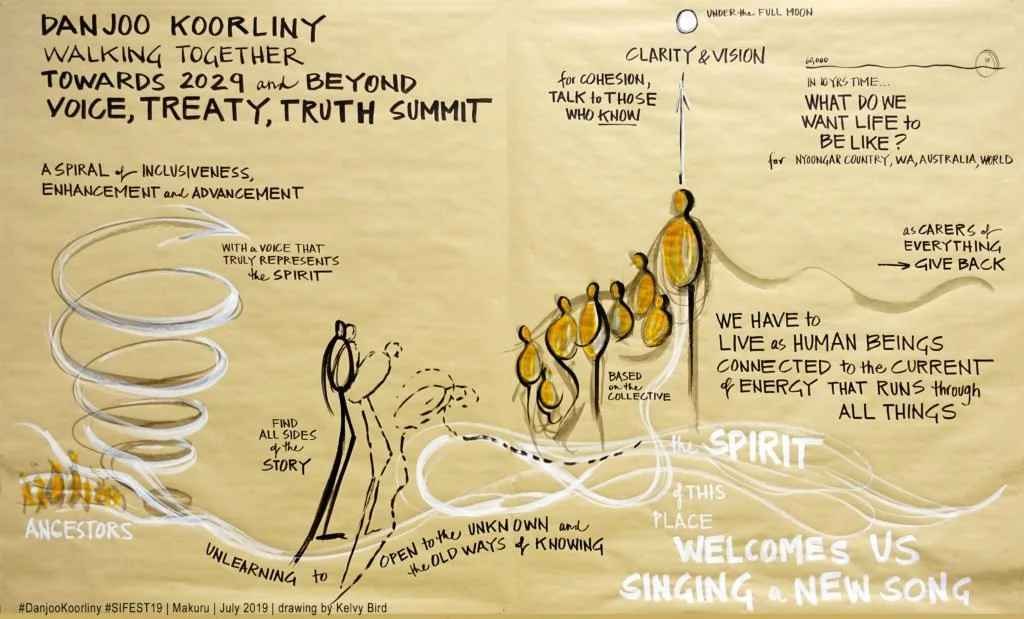 DANJOO KOORLINY
WALKING TOGETHER
TOWARDS 2029 and BEYOND
VOICE, TREATY, TRUTH SUMMIT
A SPIRAL of INCLUSIVENESS,
ENHANCEMENT and ADVANCEMENT
WITH a VOICE THAT
TRULY REPRESENTS
the SPIRIT
ANCESTORS
FIND
ALL SIDES
of the
STORY
UNLEARNING to
OPEN to the UNKNOWN and
the OLD WAYS of KNOWING
UNDER the FULL MOON
CLARITY & VISION
for COHESION,
TALK to THOSE
WHO KNOW
BASED
on the
COLLECTIVE
60,000
10
IN 10 YRS TIME...
WHAT DO WE
WANT LIFE to
BE LIKE?
for NYOONGAR COUNTRY, WA, AUSTRALIA, WORLD
as CARERS of
EVERYTHING
→ GIVE BACK
WE HAVE to
LIVE as HUMAN BEINGS
CONNECTED to the CURRENT
of ENERGY THAT RUNS through
ALL THINGS
the SPIRIT
of THIS
PLACE
WELCOMES US
SINGING a NEW SONG
#DanjooKoorliny #SIFEST19 | Makuru | July 2019 | drawing by Kelvy Bird